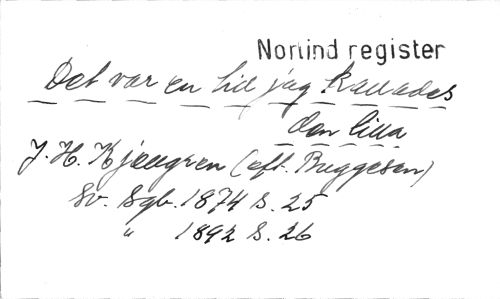 Norlind register
Det var en tid jag kallades
den lilla
J. H. Kjellgren (eft. Baggesen)
Sv. Sgb. 1874 s. 25
" 1892 s. 26